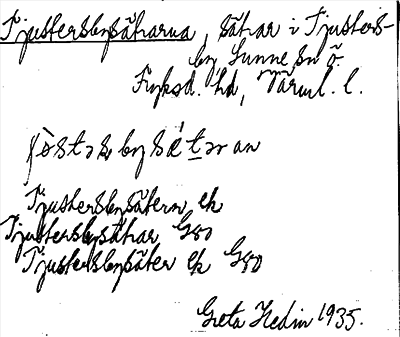 Tjustersbysätrarna, sätrar i Tjusters-
by Sunne sn ö.
Fryksd. hd, Värml. l.
Tjustersbysätern ek
Tjustersbysätrar G80
Tjustersbysäter ek G80
Greta Hedin 1935.